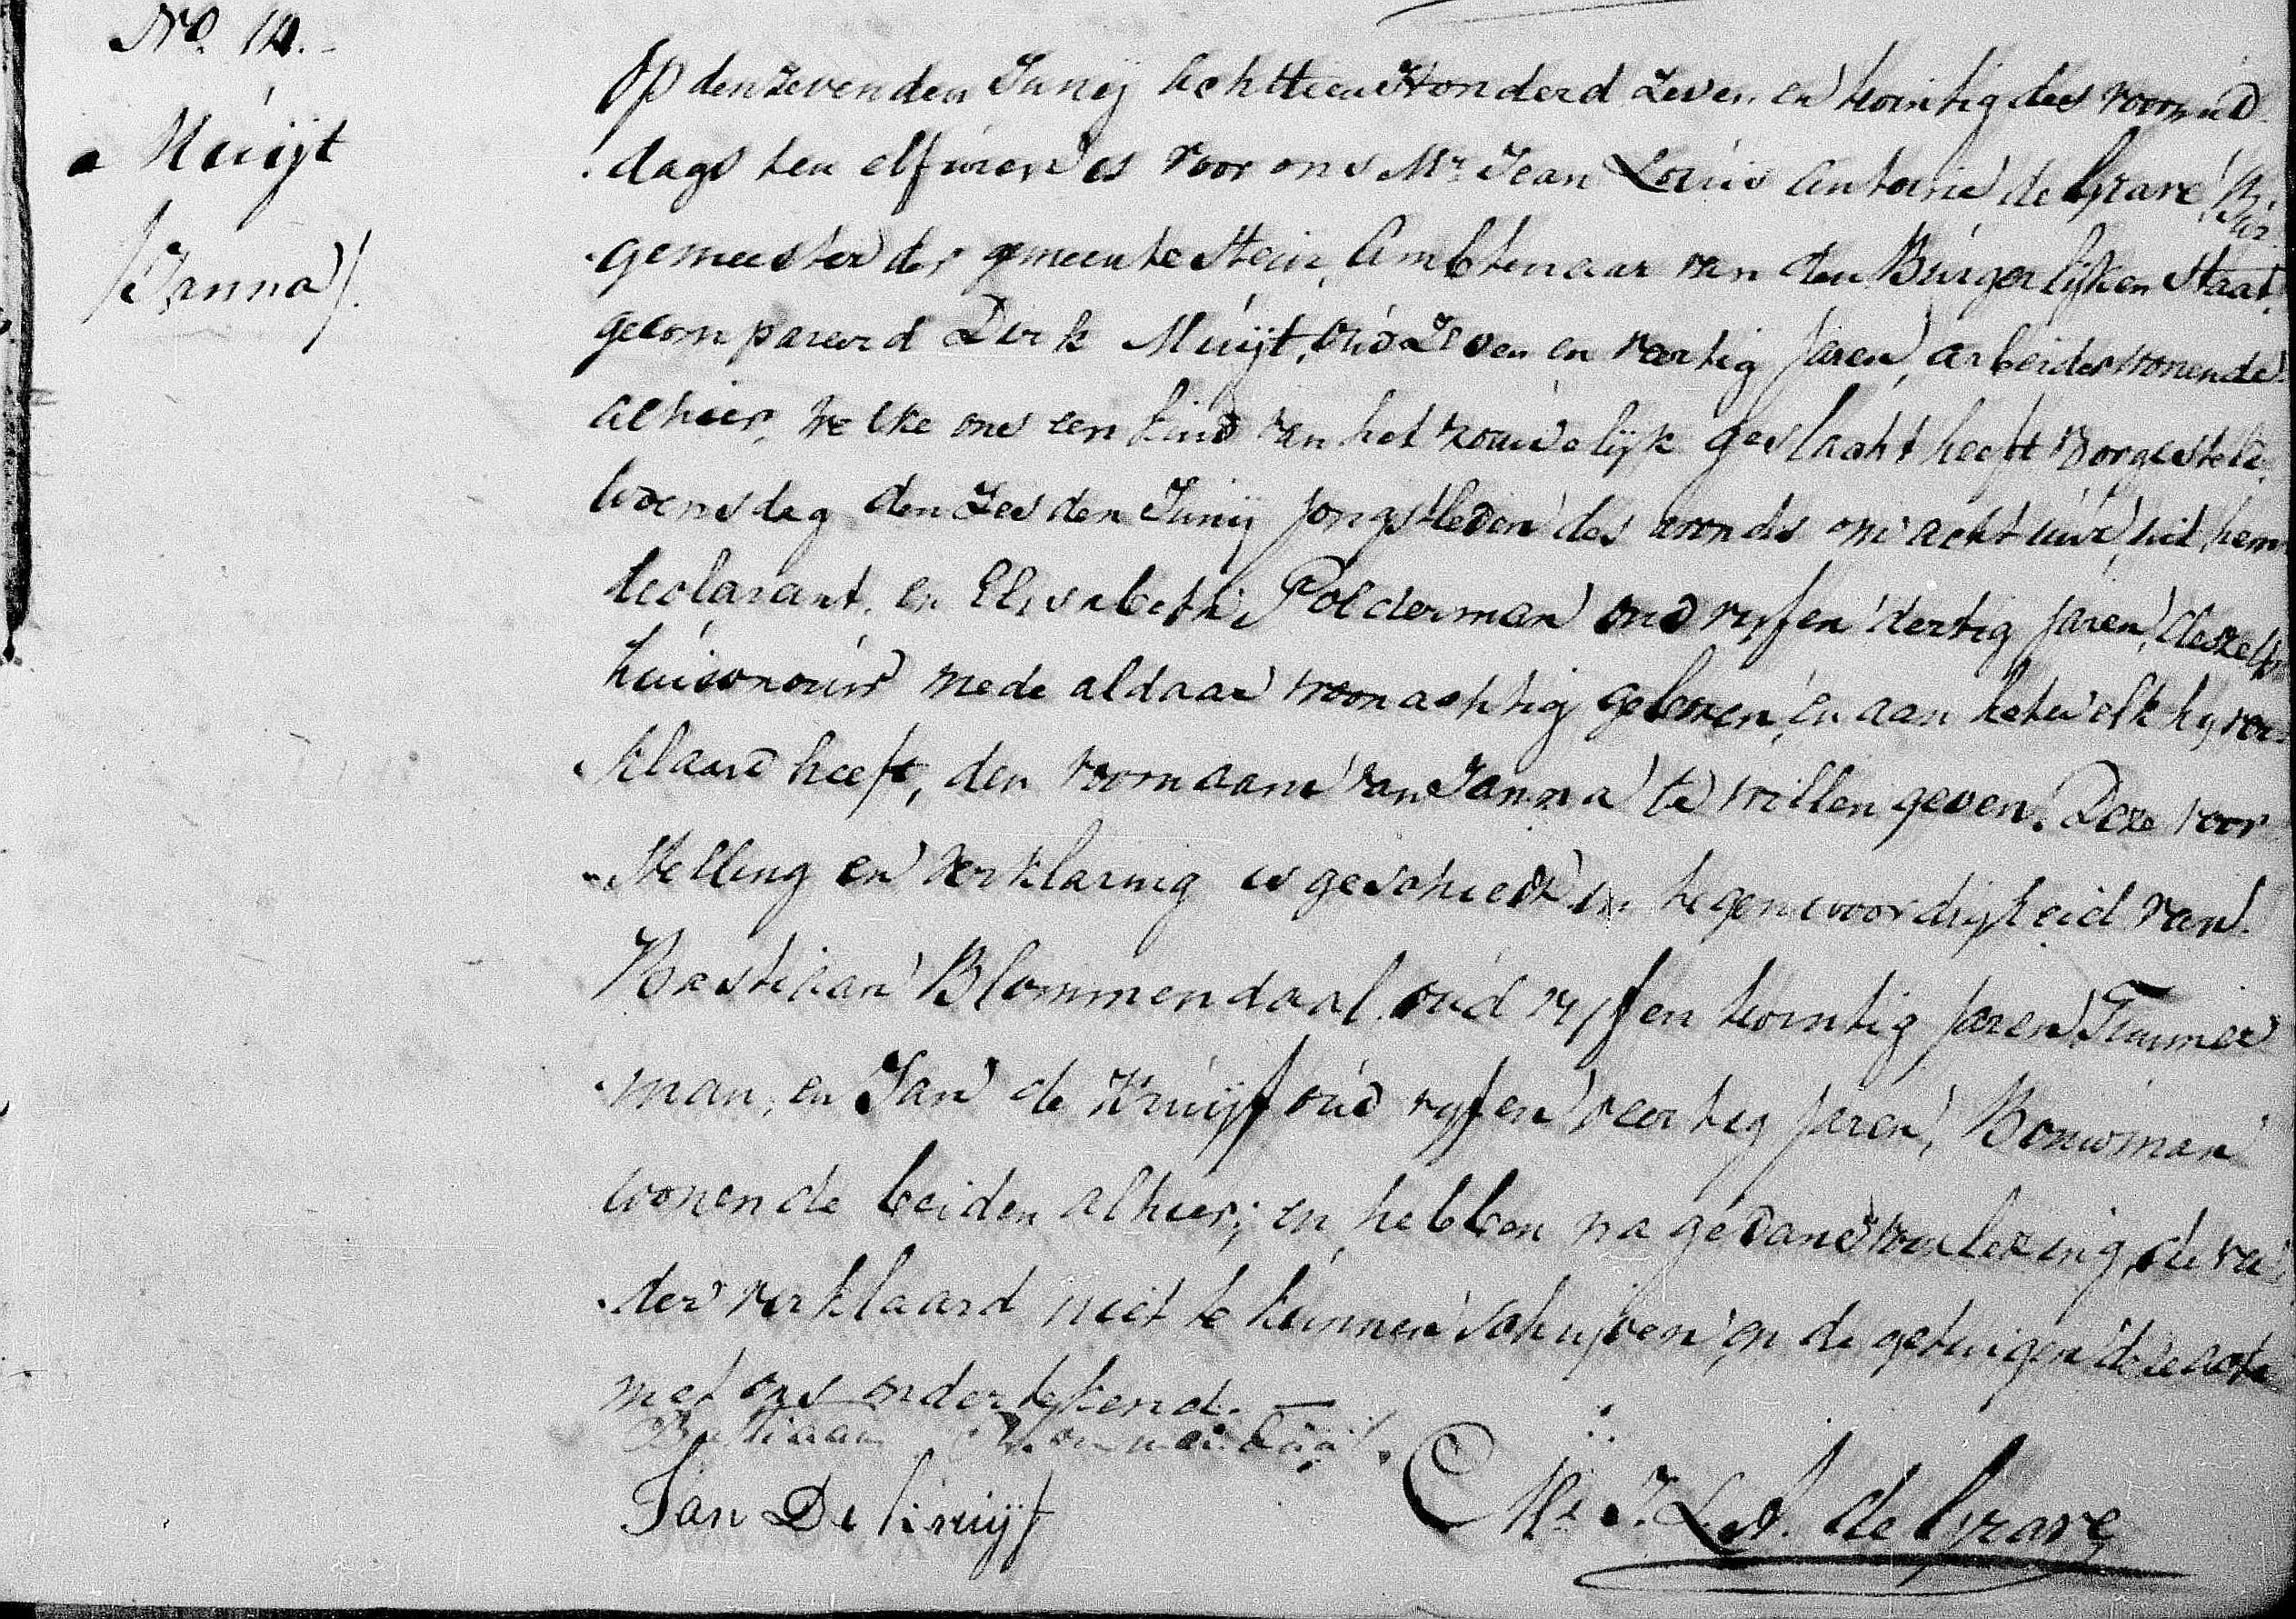 No. 14.
Muijt
(Janna).
Op den zevenden Junij Achttien Honderd Zeven en twintig des voormid
dags ten elf uren is voor ons Mr. Jean Louis Antoine de Grave, Bur
gemeester der gemeente Stein, Ambtenaar van den Burgerlijken Staat,
gecompareerd Dirk Muijt, oud Zeven en veertig jaren, arbeider wonende
alhier, welke ons een kind van het vrouwelijk geslacht heeft voorgesteld,
woensdag den Zesden Junij jongstleden des avonds om acht uur, uit hem
declarant, en Elisabeth Polderman oud vijf en dertig jaren, deszelfs
huisvrouw mede aldaar woonachtig geboren, en aan hetwelk hij ver
klaard heeft, den voornaam van Janna te willen geven. Deze voor
stelling en verklaring is geschied in tegenwoordigheid van
Bastiaan Blommendaal oud vijf en twintig jaren, Timmer
man, en Jan de Kruijf oud vijf en veertig jaren, Bouwman
wonende beiden alhier; en hebben na gedane voorlezing, de va
der verklaard niet te kunnen schrijven en de getuigen deze acte
met ons ondertekend.
Bastiaan Blommendaal.
Jan De Kruijf
Mr. J. L. A. de Grave